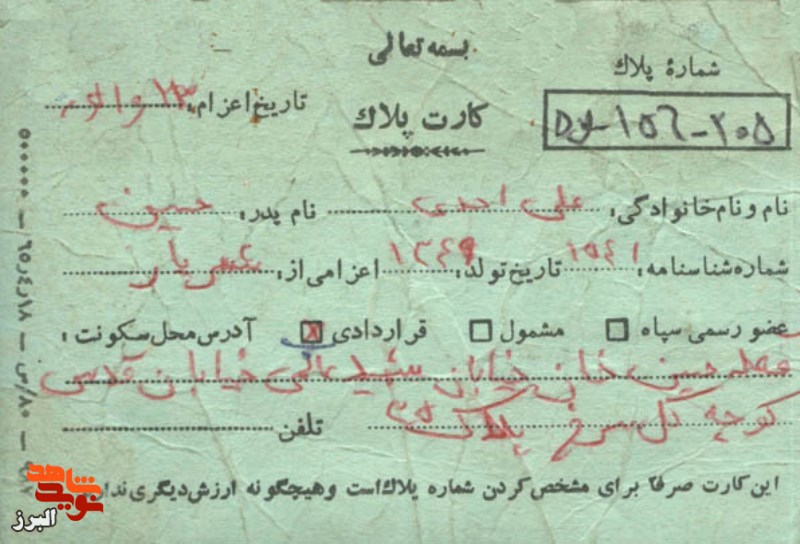 بسمه تعالی
شمارهٔ پلاك
کارت پلاك
تاریخ اعزام: ۲۳
۲۰۵-۱۵۶
نام و نام خانوادگی: علی احمدی نام پدر: حسین
شماره شناسنامه: ۱۵۴۱ تاریخ تولد: ۱۳۴۹ اعزامی از: شهریار
عضو رسمی سپاه مشمول قراردادی x آدرس محل سکونت:
حسین خان خیابان شهید خیابان قدس
کوچه گل سرخ پلاک ۳۵ تلفن
این کارت صرفاً برای مشخص کردن شماره پلاك است و هیچگونه ارزش دیگری
۵۰۰۰۰۰ ـ ۶۵٫۴٫۱۸ ـ ۸۰/ص ـ
شاهد
نوید
البرز